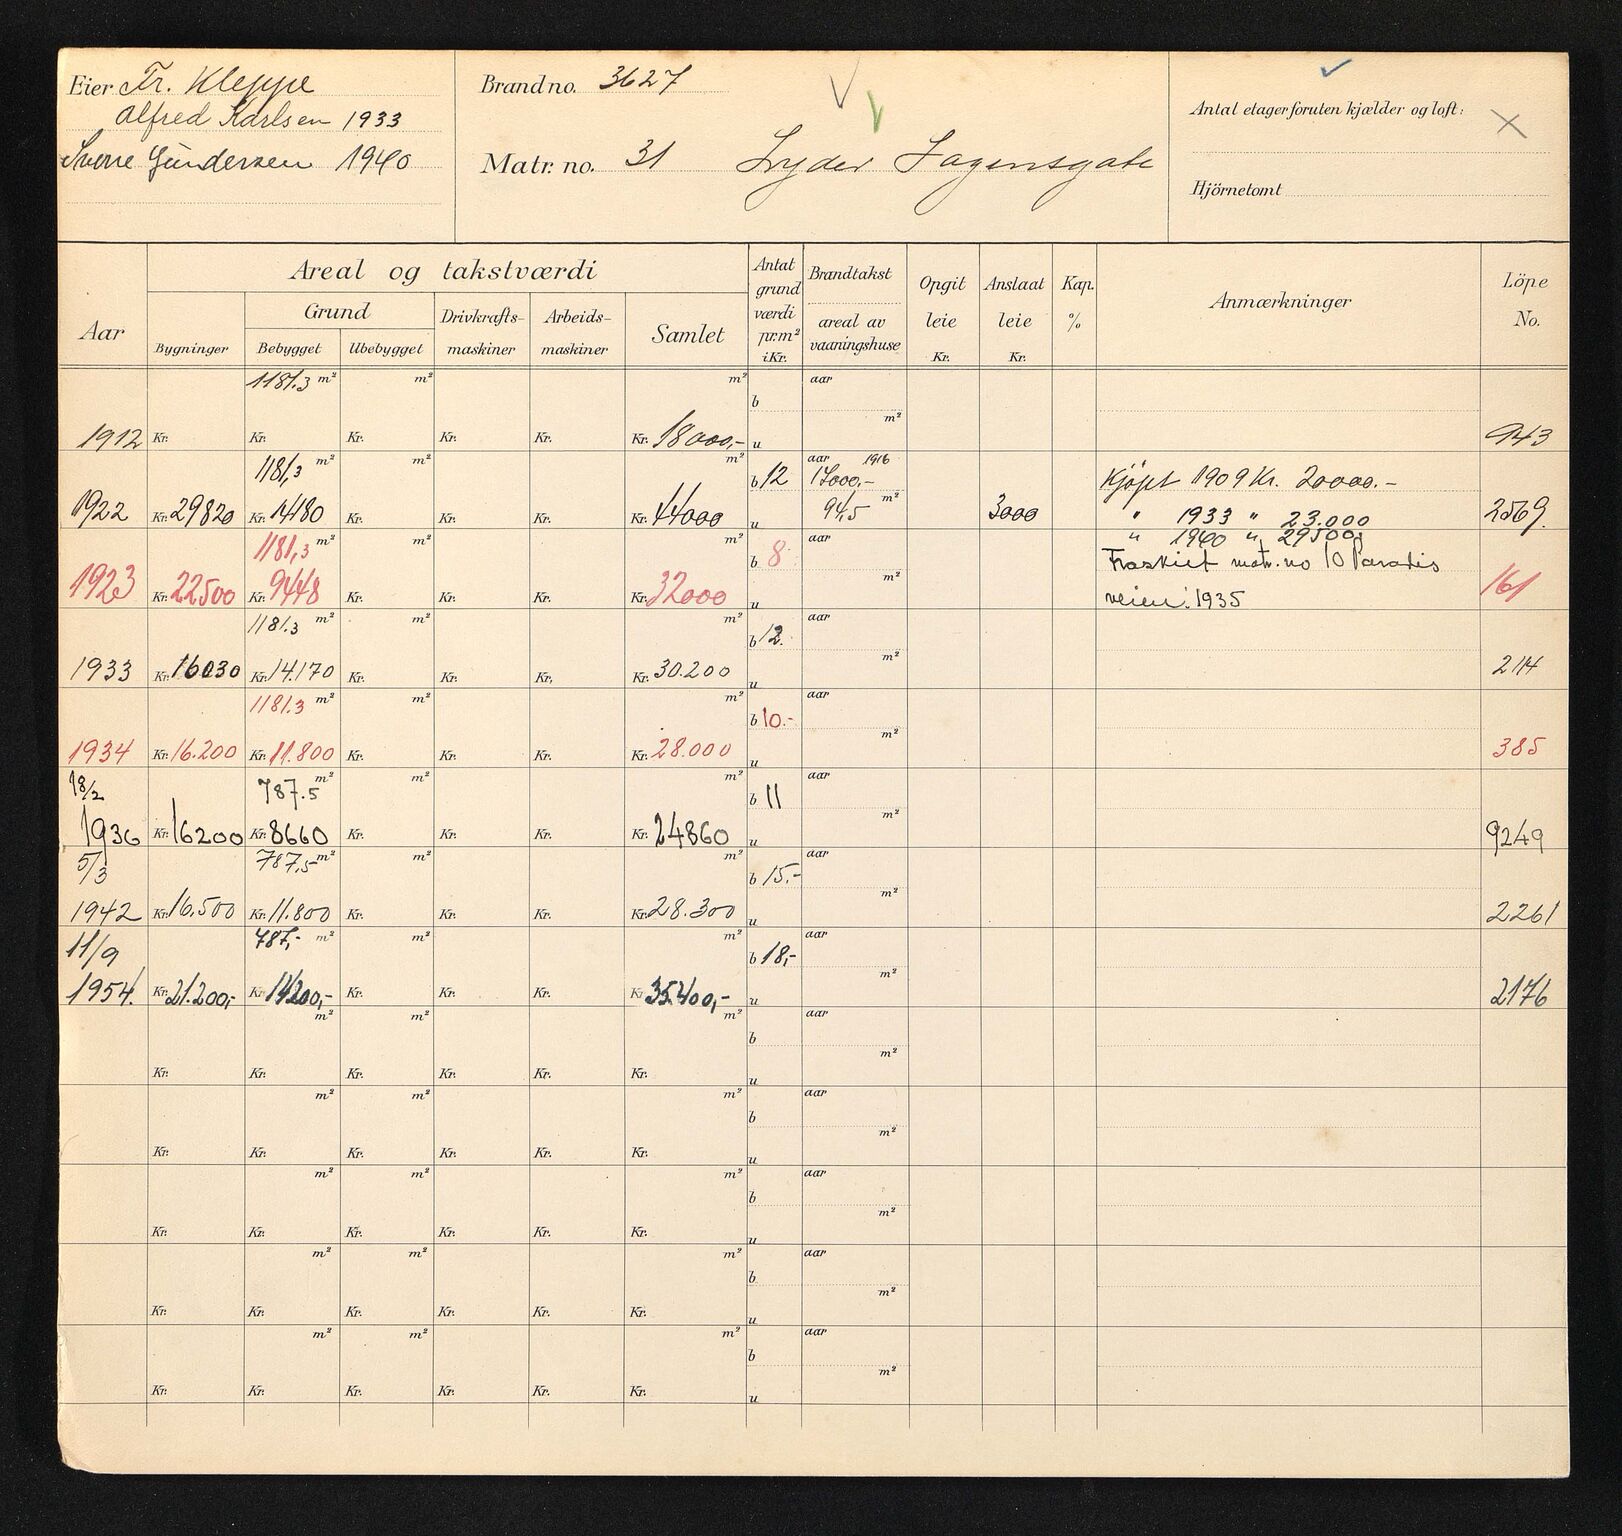 Eier Fr. Kleppe
Alfred Karlsen 1933
Sverre Gundersen 1940
Brandno. 3627
Matr. no. 31 Lyder Sagensgate
Antal etager foruten kjælder og loft:
Hjörnetomt
Aar
Areal og takstværdi
Bygninger
Grund
Bebygget Ubebygget
Drivkrafts-
maskiner
Arbeids-
maskiner
Samlet
Antat
grund
værdi
pr.m²
i Kr.
Brandtakst
areal av
vaaningshuse
Opgit
leie
Kr.
Anslaat
leie
Kr.
Kap.
%
Anmærkninger
Löpe
No.
1181.3 m² m² m² b aar
m²
1912 Kr. Kr. Kr. Kr. Kr. Kr. 18000,- u 943
1181,3 m² m² m² b 12 aar 1916
17000,- Kjøpt 1909 Kr. 20000.-
94,5 m²
1922 Kr. 29820 Kr. 14180 Kr. Kr. Kr. Kr. 44000 u 3000 " 1933 " 23.000 2569.
" 1940 " 29500,
1181,3 m² m² m² b 8 aar Fraskilt matr. no 10 Paradis
m²
1923 Kr. 22500 Kr. 9448 Kr. Kr. Kr. Kr. 32000 u veien 1935 161
1181.3 m² m² m² b 12. aar
m²
1933 Kr. 16030 Kr. 14.170 Kr. Kr. Kr. Kr. 30.200 u 214
1181.3 m² m² m² b 10.- aar
m²
1934 Kr. 16.200 Kr. 11.800 Kr. Kr. Kr. Kr. 28.000 u 385
18/2 787.5 m² m² m² b 11 aar
m²
1936 Kr. 16200 Kr. 8660 Kr. Kr. Kr. Kr. 24860 u 9249
5/3 787,5 m² m² m² b 15,- aar
m²
1942 Kr. 16.500 Kr. 11.800 Kr. Kr. Kr. Kr. 28.300 u 2261
11/9 787,- m² m² m² b 18,- aar
m²
1954. Kr. 21.200,- Kr. 14200,- Kr. Kr. Kr. Kr. 35.400,- u 2176
m² m² m² b aar
m²
Kr. Kr. Kr. Kr. Kr. Kr. u
m² m² m² b aar
m²
Kr. Kr. Kr. Kr. Kr. Kr. u
m² m² m² b aar
m²
Kr. Kr. Kr. Kr. Kr. Kr. u
m² m² m² b aar
m²
Kr. Kr. Kr. Kr. Kr. Kr. u
m² m² m² b aar
m²
Kr. Kr. Kr. Kr. Kr. Kr. u